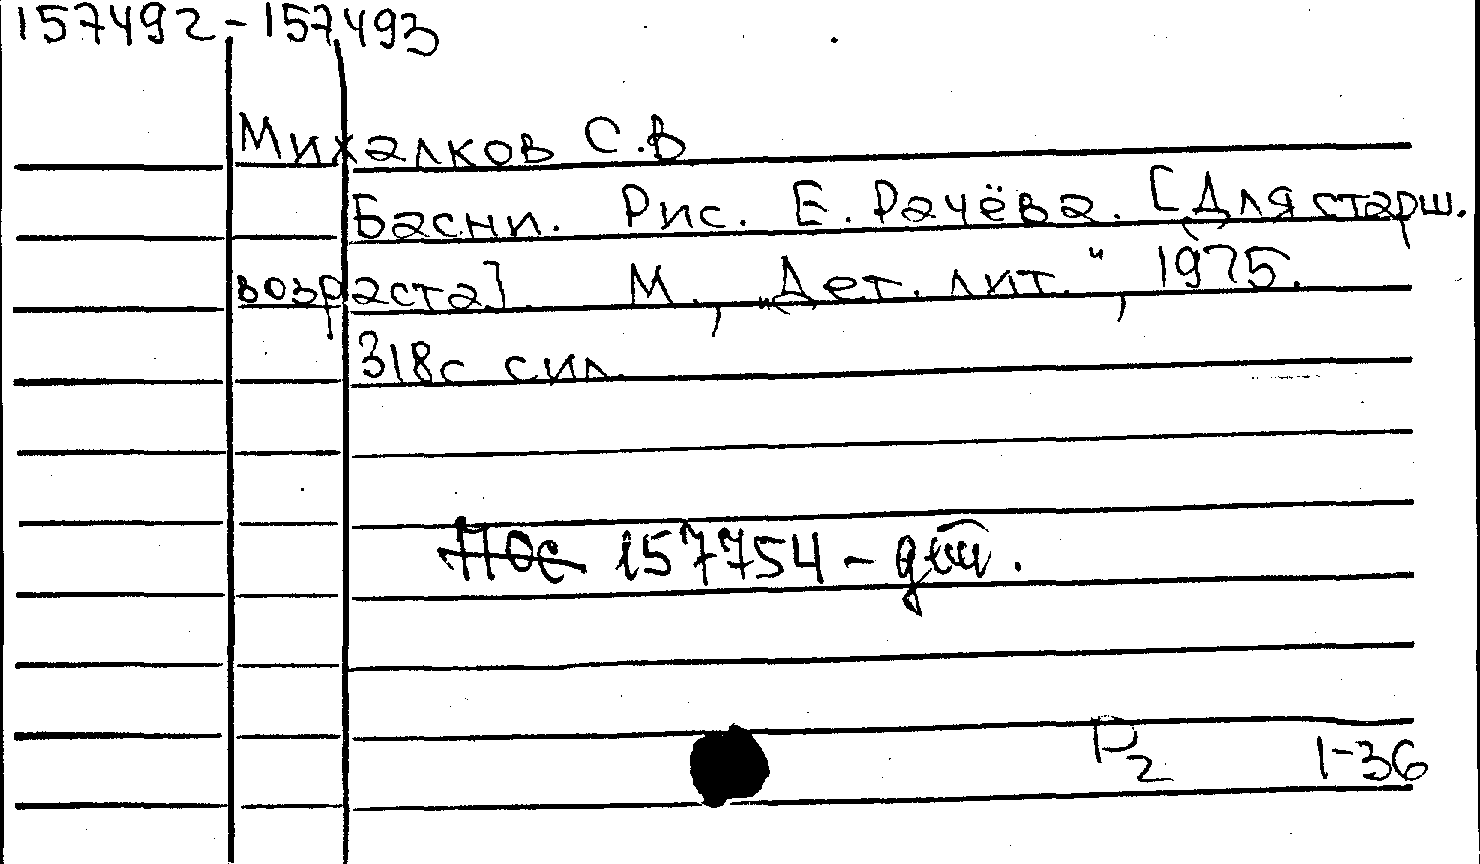 157492-157493
Михалков С.В
Басни. Рис. Е. Рачёва. [Для старш.
возраста]. М., „Дет. лит.", 1975.
318с с ил.
157754 -
Р2 1-36